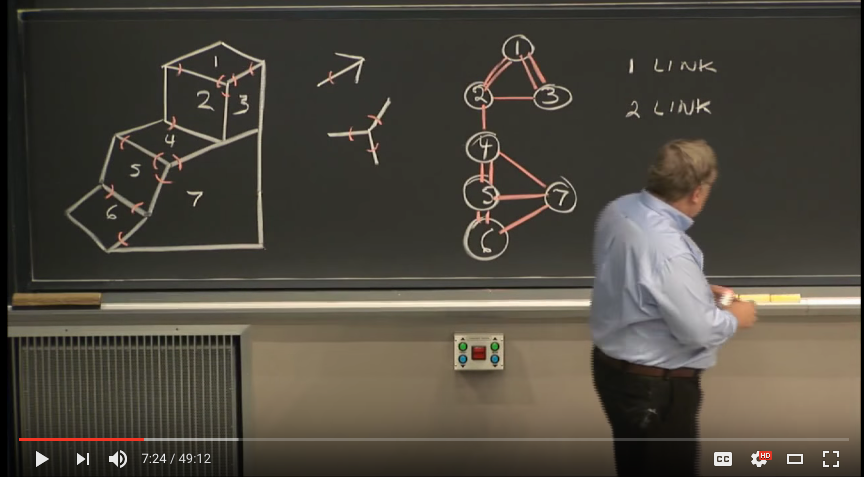 1
2 3
4
5
6
7
1
2 3
4
5
7
6
1 LINK
2 LINK
7:24 / 49:12
CC
HD